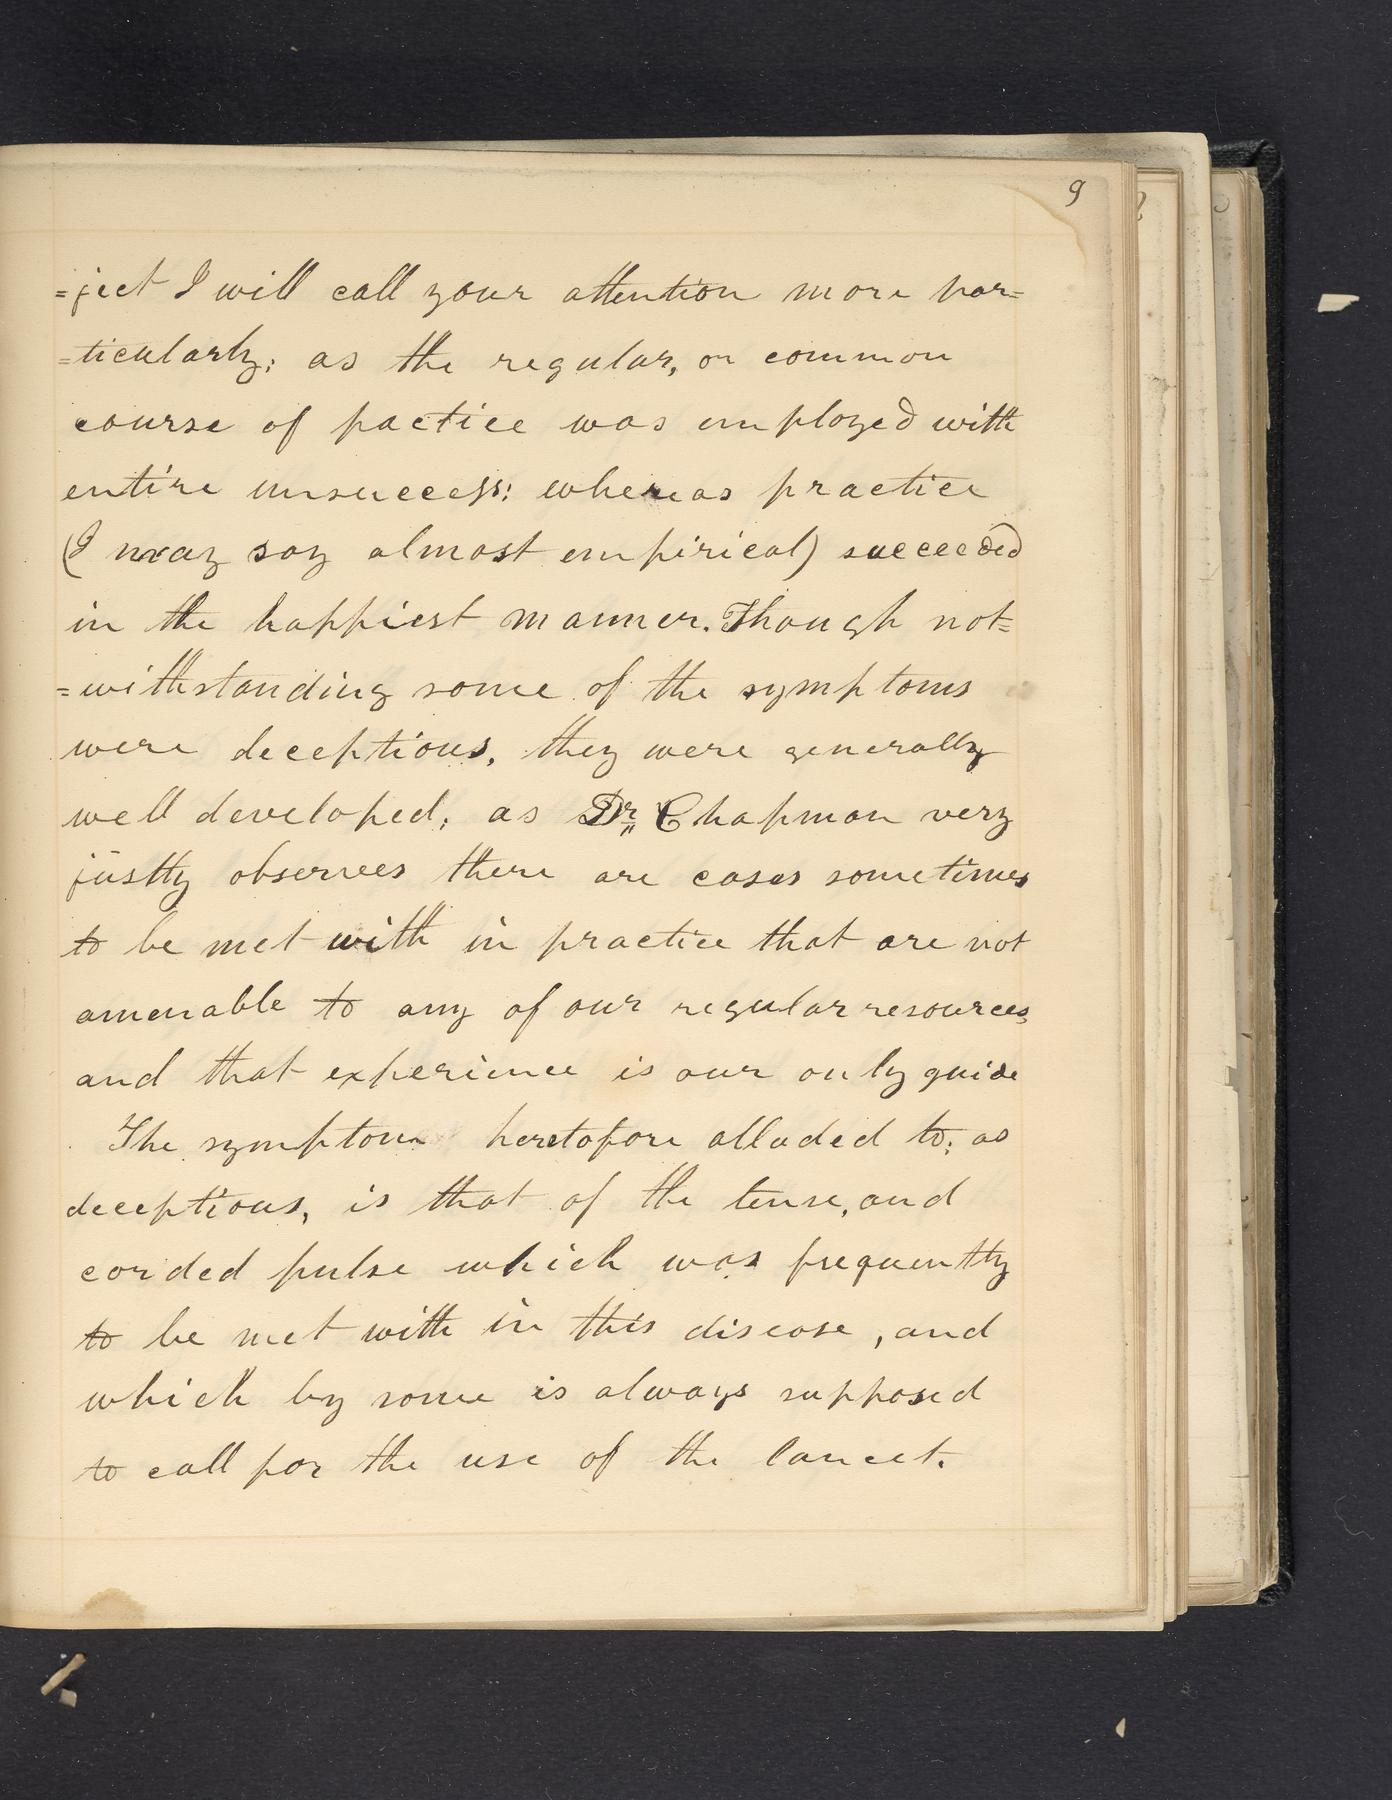 9
=ject I will call your attention more par=
=ticularly; as the regular, or common
course of pactice was employed with
entire unsuccess; whereas practice
(I may say almost empirical) succeeded
in the happiest manner. Though not=
=withstanding some of the symptoms
were deceptious, they were generally
well developed; as Dr. Chapman very
justly observes there are cases sometimes
to be met with in practice that are not
amenable to any of our regular resources,
and that experience is our only guide
The symptom heretofore alluded to; as
deceptious, is that of the tense, and
corded pulse which was frequently
to be met with in this disease, and
which by some is always supposed
to call for the use of the lancet.